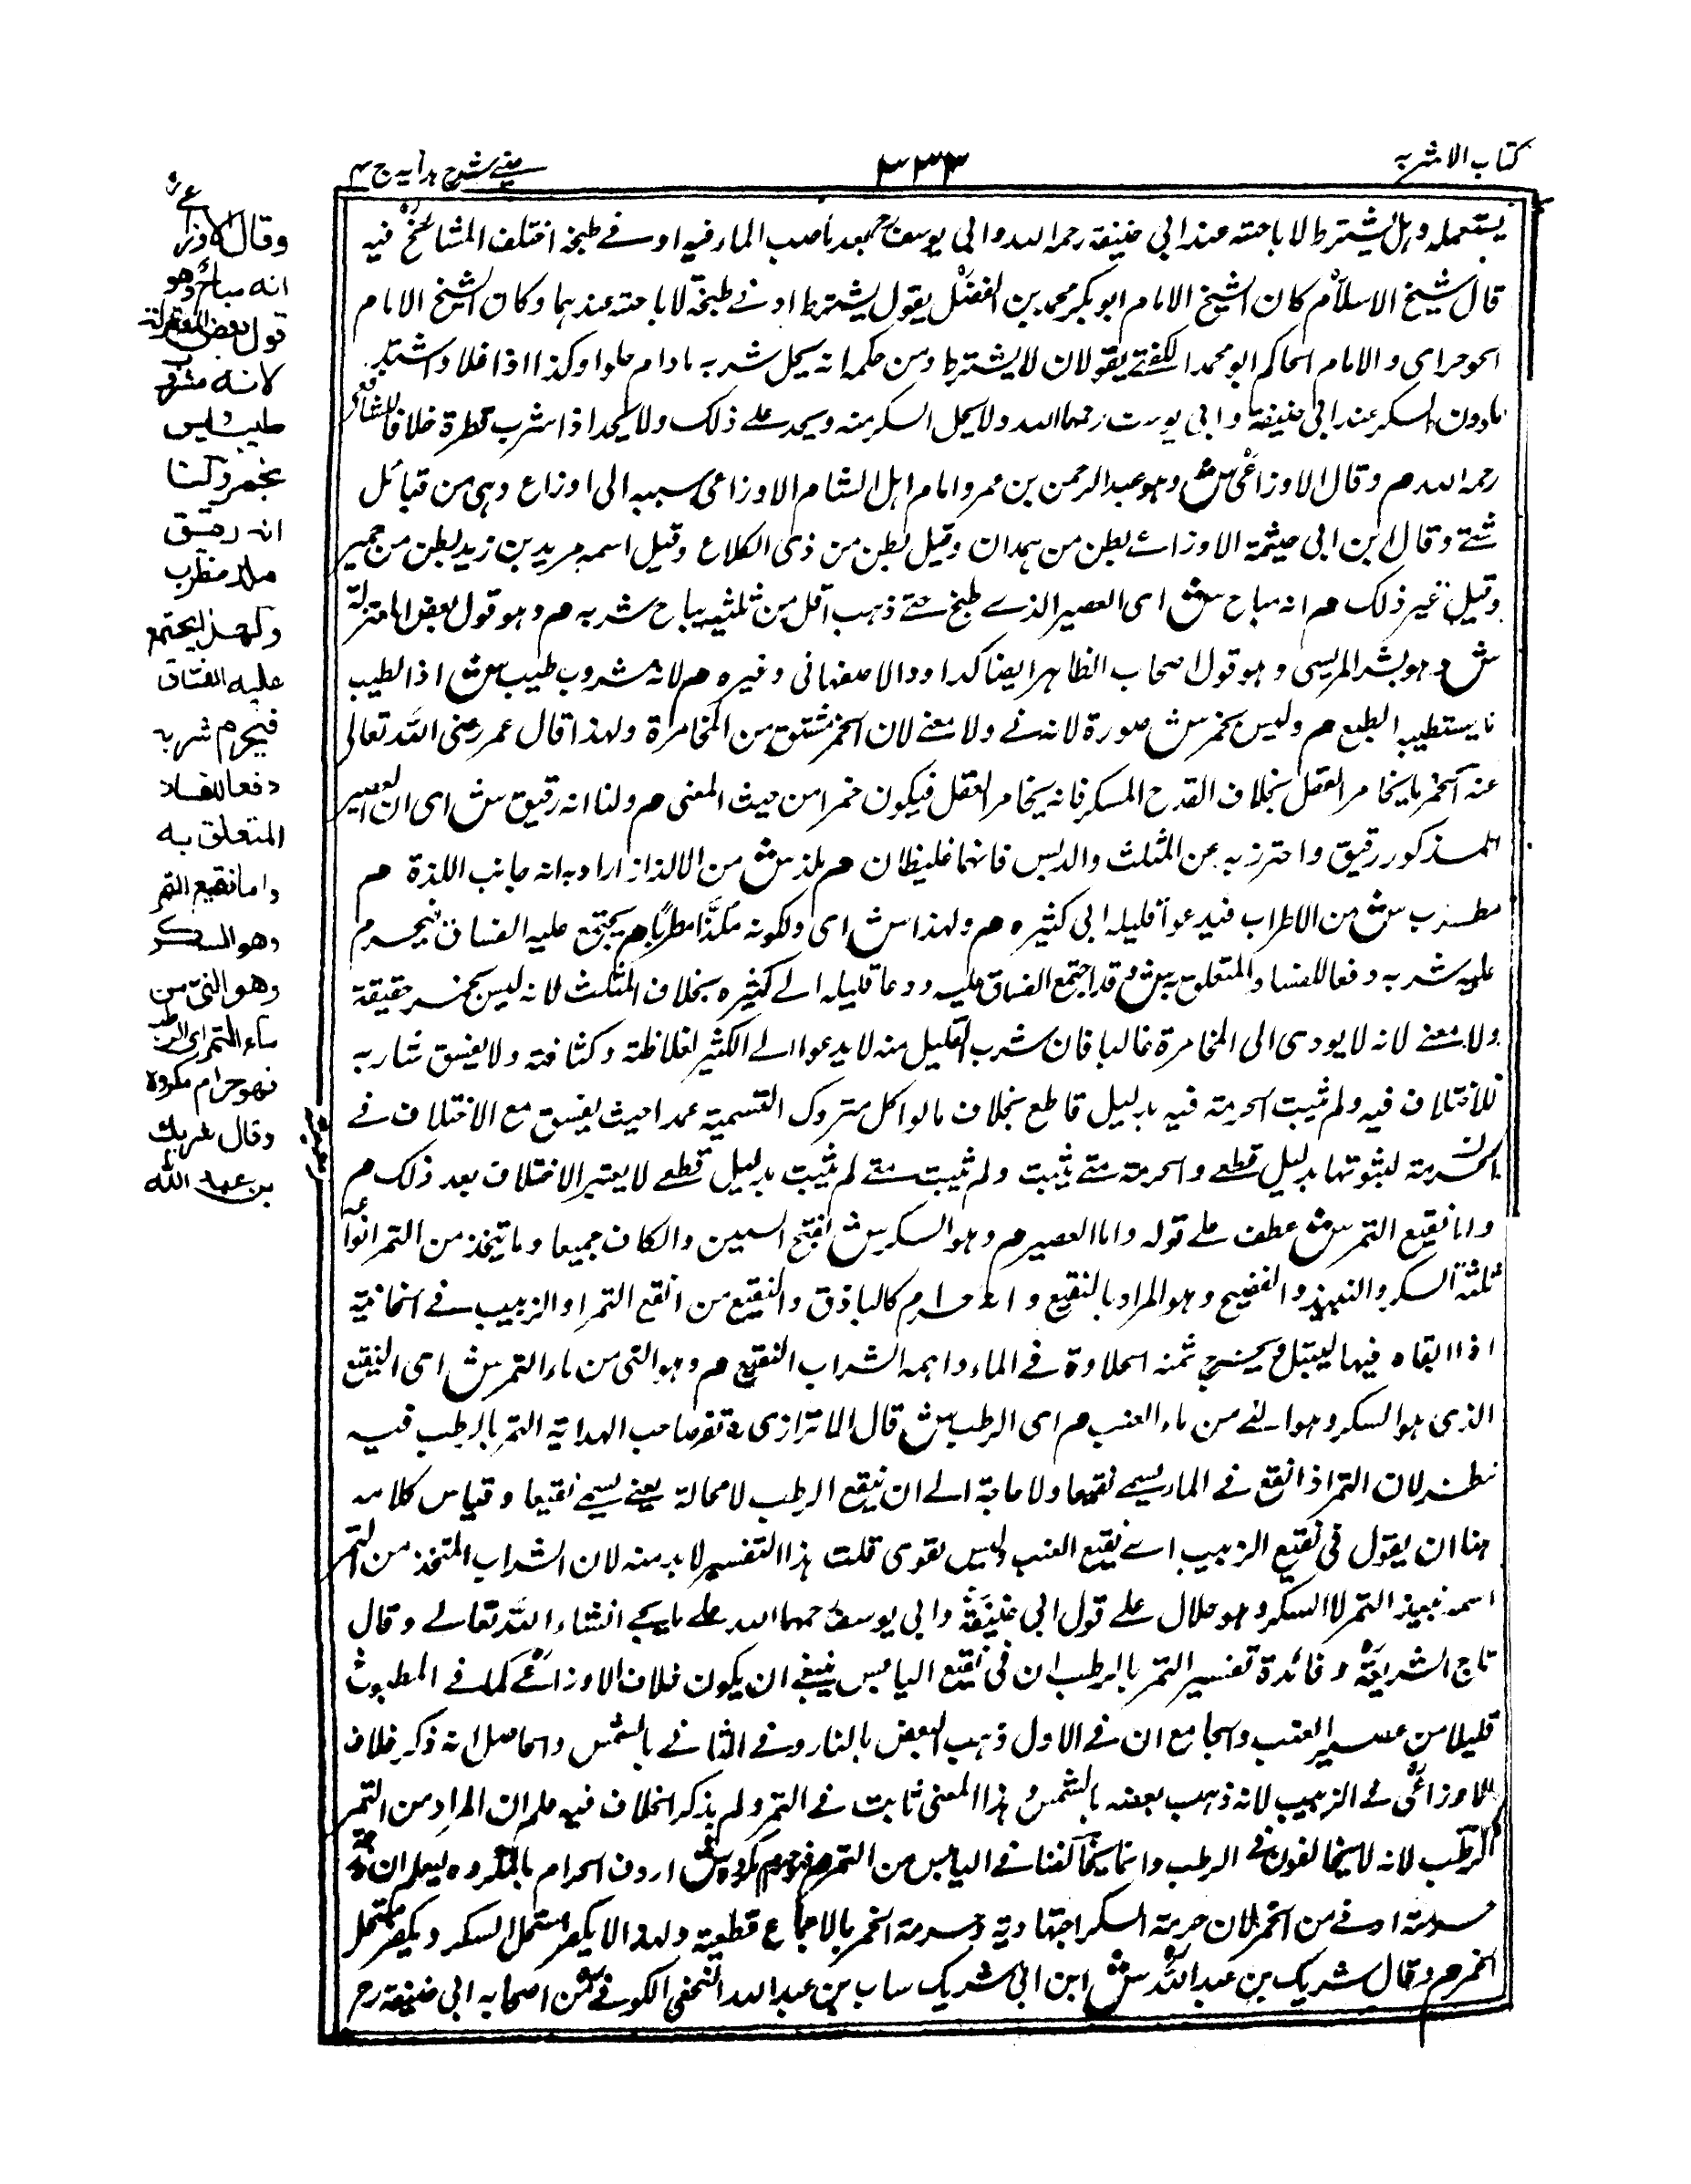 كتاب الاشربه
٣٣٣
عينى شرح هدايه ج ٤
يستعمله وهل يشترط لاباحته عند ابي حنيفة رحمه الله وابي يوسف رح بعد ما صب الماء فيه ادنى طبخة اختلف المشائخ فيه
قال شيخ الاسلام كان الشيخ الامام ابو بكر محمد بن الفضل يقول يشترط ادنى طبخة لاباحته عندهما وكان الشيخ الامام
والامام الحاكم ابو محمد يقولان لا يشترط ومن حكمه انه يحل شربه مادام حلوا وكذا اذا غلا واشتد
مادون السكر عند ابي حنيفة وابي يوسف رحمهما الله ولا يحل السكر منه ويحد على ذلك ولا يحد اذا شرب قطرة خلافا للشافعي
رحمه الله م وقال الاوزاعي ش وهو عبد الرحمن بن عمرو امام اهل الشام الاوزاعي نسبه الى اوزاع وهي من قبائل
شتى وقال ابن ابي خيثمة الاوزاعي بطن من همدان وقيل بطن من ذي الكلاع وقيل اسمه مرثد بن زيد بطن من حمير
وقيل غير ذلك م انه مباح ش اى العصير الذي طبخ حتى ذهب اقل من ثلثيه يباح شربه م وهو قول بعض المعتزلة
ش وهو بشر المريسي وهو قول اصحاب الظاهر ايضا كداود الاصفهاني وغيره م لانه مشروب طيب ش اذ الطيب
ما يستطيبه الطبع م وليس بخمر ش صورة لانه نى ولا معنى لان الخمر مشتق من المخامرة ولهذا قال عمر رضى الله تعالى
عنه الخمر ما يخامر العقل بخلاف القدح المسكر فانه يخامر العقل فيكون خمرا من حيث المعنى م ولنا انه رقيق ش اى ان العصير
المذكور رقيق واحترز به عن المثلث والدبس فانهما غليظان م ملذ ش من الالذاذ اراد به انه جانب اللذة م
مطرب ش من الاطراب فيدعو قليله الى كثيره م ولهذا ش اى ولكونه ملذا مطربا م يجتمع عليه الفساق فيحرم
عليه شربه دفعا للفساد المتعلق به ش وقد اجتمع الفساق عليه ودعا قليله الى كثيره بخلاف المثلث لانه ليس بخمر حقيقة
ولا معنى لانه لا يودى الى المخامرة غالبا فان شرب القليل منه لا يدعو الى الكثير لغلاظته وكثافته ولا يفسق شاربه
للاختلاف فيه ولم يثبت الحرمة فيه بدليل قاطع بخلاف ما لو اكل متروك التسمية عمدا حيث يفسق مع الاختلاف في
الحرمة لثبوتها بدليل قطعي والحرمة متى يثبت ولم يثبت متى لم يثبت بدليل قطعي لا يعتبر الاختلاف بعد ذلك م
واما نقيع التمر ش عطف على قوله واما العصير م وهو السكر ش بفتح السين والكاف جميعا وما يتخذ من التمر انواع
ثلثة السكر والنبيذ والفضيح وهو المراد بالنقيع وانه حرام كالباذق والنقيع من انقع التمر او الزبيب في الخابية
اذا القاه فيها ليبتل ويخرج ثمنه الحلاوة في الماء واسم الشراب النقيع م وهو الني من ماء التمر ش اى النقيع
الذي هو السكر وهو الني من ماء العنب م اى الرطب ش قال الاترازى وتفسير صاحب الهداية التمر بالرطب فيه
نظر لان التمر اذا نقع في الماء يسمى نقيعا ولا حاجة الى ان ينقع الرطب لا محالة يعنى يسمى نقيعا وقياس كلامه
هنا ان يقول في نقيع الزبيب اى نقيع العنب وليس بقوى قلت هذا التفسير لا بد منه لان الشراب المتخذ من التمر
اسمه نبيذ التمر لا السكر وهو حلال على قول ابي حنيفة وابي يوسف رحمهما الله على ما يجي انشاء الله تعالى وقال
تاج الشريعة وفائدة تفسير التمر بالرطب ان في نقيع اليابس ينبغى ان يكون خلاف الاوزاعي كما في المطبوخ
قليلا من عصير العنب والجامع ان في الاول ذهب البعض بالنار وفي الثاني بالشمس والحاصل انه ذكر خلاف
الاوزاعي في الزبيب لانه ذهب بعضه بالشمس هذا المعنى ثابت في التمر ولم يذكر الخلاف فيه علم ان المراد من التمر
الرطب لانه لا يخالفون في الرطب وانما يخالفنا في اليابس من التمر م فهو حرام مكروه ش اردف الحرام بالمكروه ليعلم ان
حرمته ادنى من الخمر لان حرمة السكر اجتهادية وحرمة الخمر بالاجماع قطعية ولهذا لا يكفر مستحل السكر ويكفر مستحل
الخمر م وقال شريك بن عبد الله ش ابن ابي شريك بن عبد الله النخعي الكوفي من اصحابه ابي حنيفة رح
وقال الاوزاعى
انه مباح وهو
قول بعض المعتزلة
لانه مشروب
طيب وليس
بخمر ولنا
انه رقيق
ملذ مطرب
ولهذا يجتمع
عليه الفساق
فيحرم شربه
دفعا للفساد
المتعلق به
واما نقيع التمر
وهو السكر
وهو النى من
ماء التمر اى الرطب
فهو حرام مكروه
وقال شريك
بن عبد الله